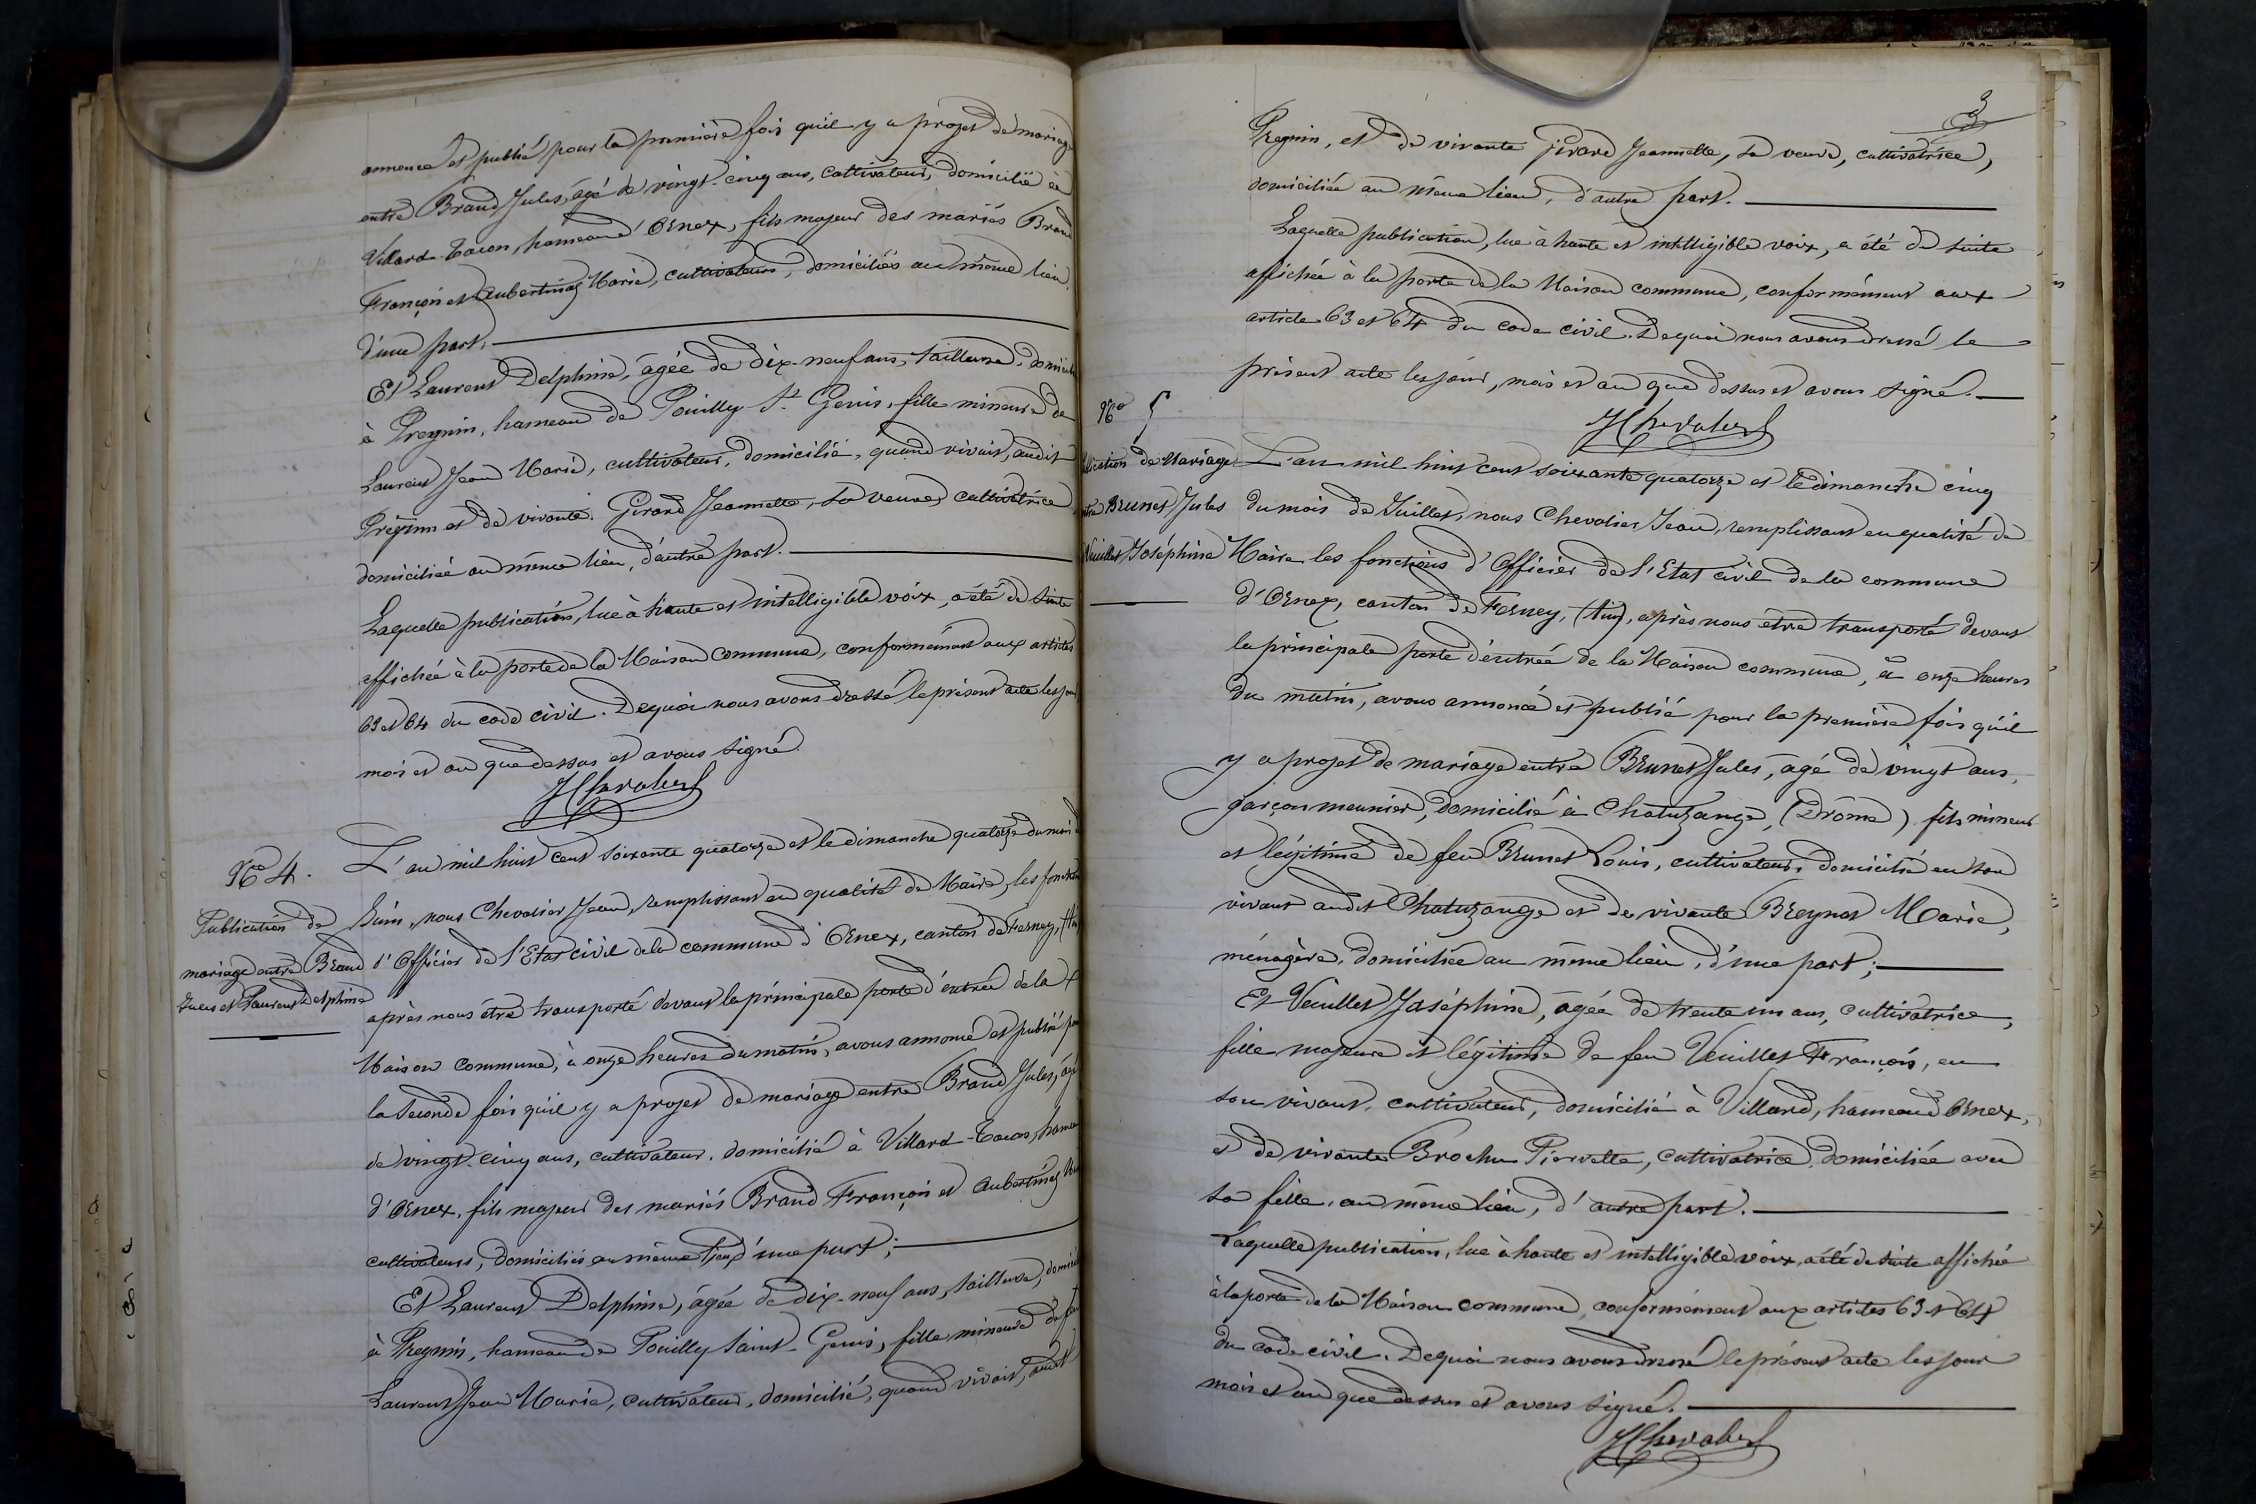 annoncé et publié pour la première fois qu'il y a projet de mariage
entre Brand Jules, âgé de vingt-cinq ans, cultivateur, domicilié à
Villard-Tacon, hameau d'Ornex, fils majeur des mariés Brand
François et Aubertinaz Marie, cultivateurs, domiciliés au même lieu
d'une part.
Et Laurent Delphine, âgée de dix-neuf ans, tailleuse, domiciliée
à Pregnin, hameau de Pouilly St. Genis, fille mineure de
Laurent Jean Marie, cultivateur, domicilié, quand vivait, audit
Prégnin et de vivante Girard Jeannette, sa veuve, cultivatrice
domiciliée au même lieu, d'autre part.
Laquelle publication, lue à haute et intelligible voix, a été de suite
affichée à la porte de la Maison commune, conformément aux articles
63 et 64 du code civil. De quoi nous avons dressé le présent acte les jour
mois et an que dessus et avons signé.
JChevalier
No 4.
Publication de
mariage entre Brand
Jules et Laurent Delphine
L'an mil huit cent soixante quatorze et le dimanche quatorze du mois de
Juin, nous Chevalier Jean, remplissant en qualité de Maire, les fonctions
d'Officier de l'Etat civil de la commune d'Ornex, canton de Ferney, (Ain)
après nous être transporté devant la principale porte d'entrée de la
Maison commune, à onze heures du matin, avons annoncé et publié pour
la seconde fois qu'il y a projet de mariage entre Brand Jules, âgé
de vingt-cinq ans, cultivateur, domicilié à Villard-Tacon, hameau
d'Ornex, fils majeur des mariés Brand François et Aubertinaz Marie
cultivateurs, domiciliés au même lieu d'une part;
Et Laurent Delphine, âgée de dix-neuf ans, tailleuse, domiciliée
à Pregnin, hameau de Pouilly Saint-Genis, fille mineure de feu
Laurent Jean Marie, cultivateur, domicilié, quand vivait, audit
3
Pregnin, et de vivante Girard Jeannette, sa veuve, cultivatrice,
domiciliée au même lieu, d'autre part.
Laquelle publication, lue à haute et intelligible voix, a été de suite
affichée à la porte de la Maison commune, conformément aux
article 63 et 64 du code civil. De quoi nous avons dressé le
présent acte les jour, mois et an que dessus et avons signé.
JChevalier
No 5
Publication de Mariage
entre Brunet Jules
Veuillet Joséphine
L'an mil huit cent soixante quatorze et le dimanche cinq
du mois de Juillet, nous Chevalier Jean, remplissant en qualité de
Maire les fonctions d'Officier de l'Etat civil de la commune
d'Ornex, canton de Ferney, (Ain), après nous être transporté devant
la principale porte d'entrée de la Maison commune, à onze heures
du matin, avons annoncé et publié pour la première fois qu'il
y a projet de mariage entre Brunet Jules, âgé de vingt ans,
garçon meunier, domicilié à Chatuzange, (Drôme) fils mineur
et légitime de feu Brunet Louis, cultivateur, domicilié en son
vivant audit Chatuzange et de vivante Breynat Marie,
ménagère, domiciliée au même lieu, d'une part;
Et Veuillet Joséphine, âgée de trente un ans, cultivatrice,
fille majeure et légitime de feu Veuillet François, en
son vivant, cultivateur, domicilié à Villard, hameau d'Ornex,
et de vivante Brochu Pierrette, cultivatrice, domiciliée avec
sa fille, au même lieu, d'autre part.
Laquelle publication, lue à haute et intelligible voix, a été de suite affichée
à la porte de la Maison commune, conformément aux articles 63 et 64
du code civil. De quoi nous avons dressé le présent acte les jour
mois et an que dessus et avons signé.
JChevalier